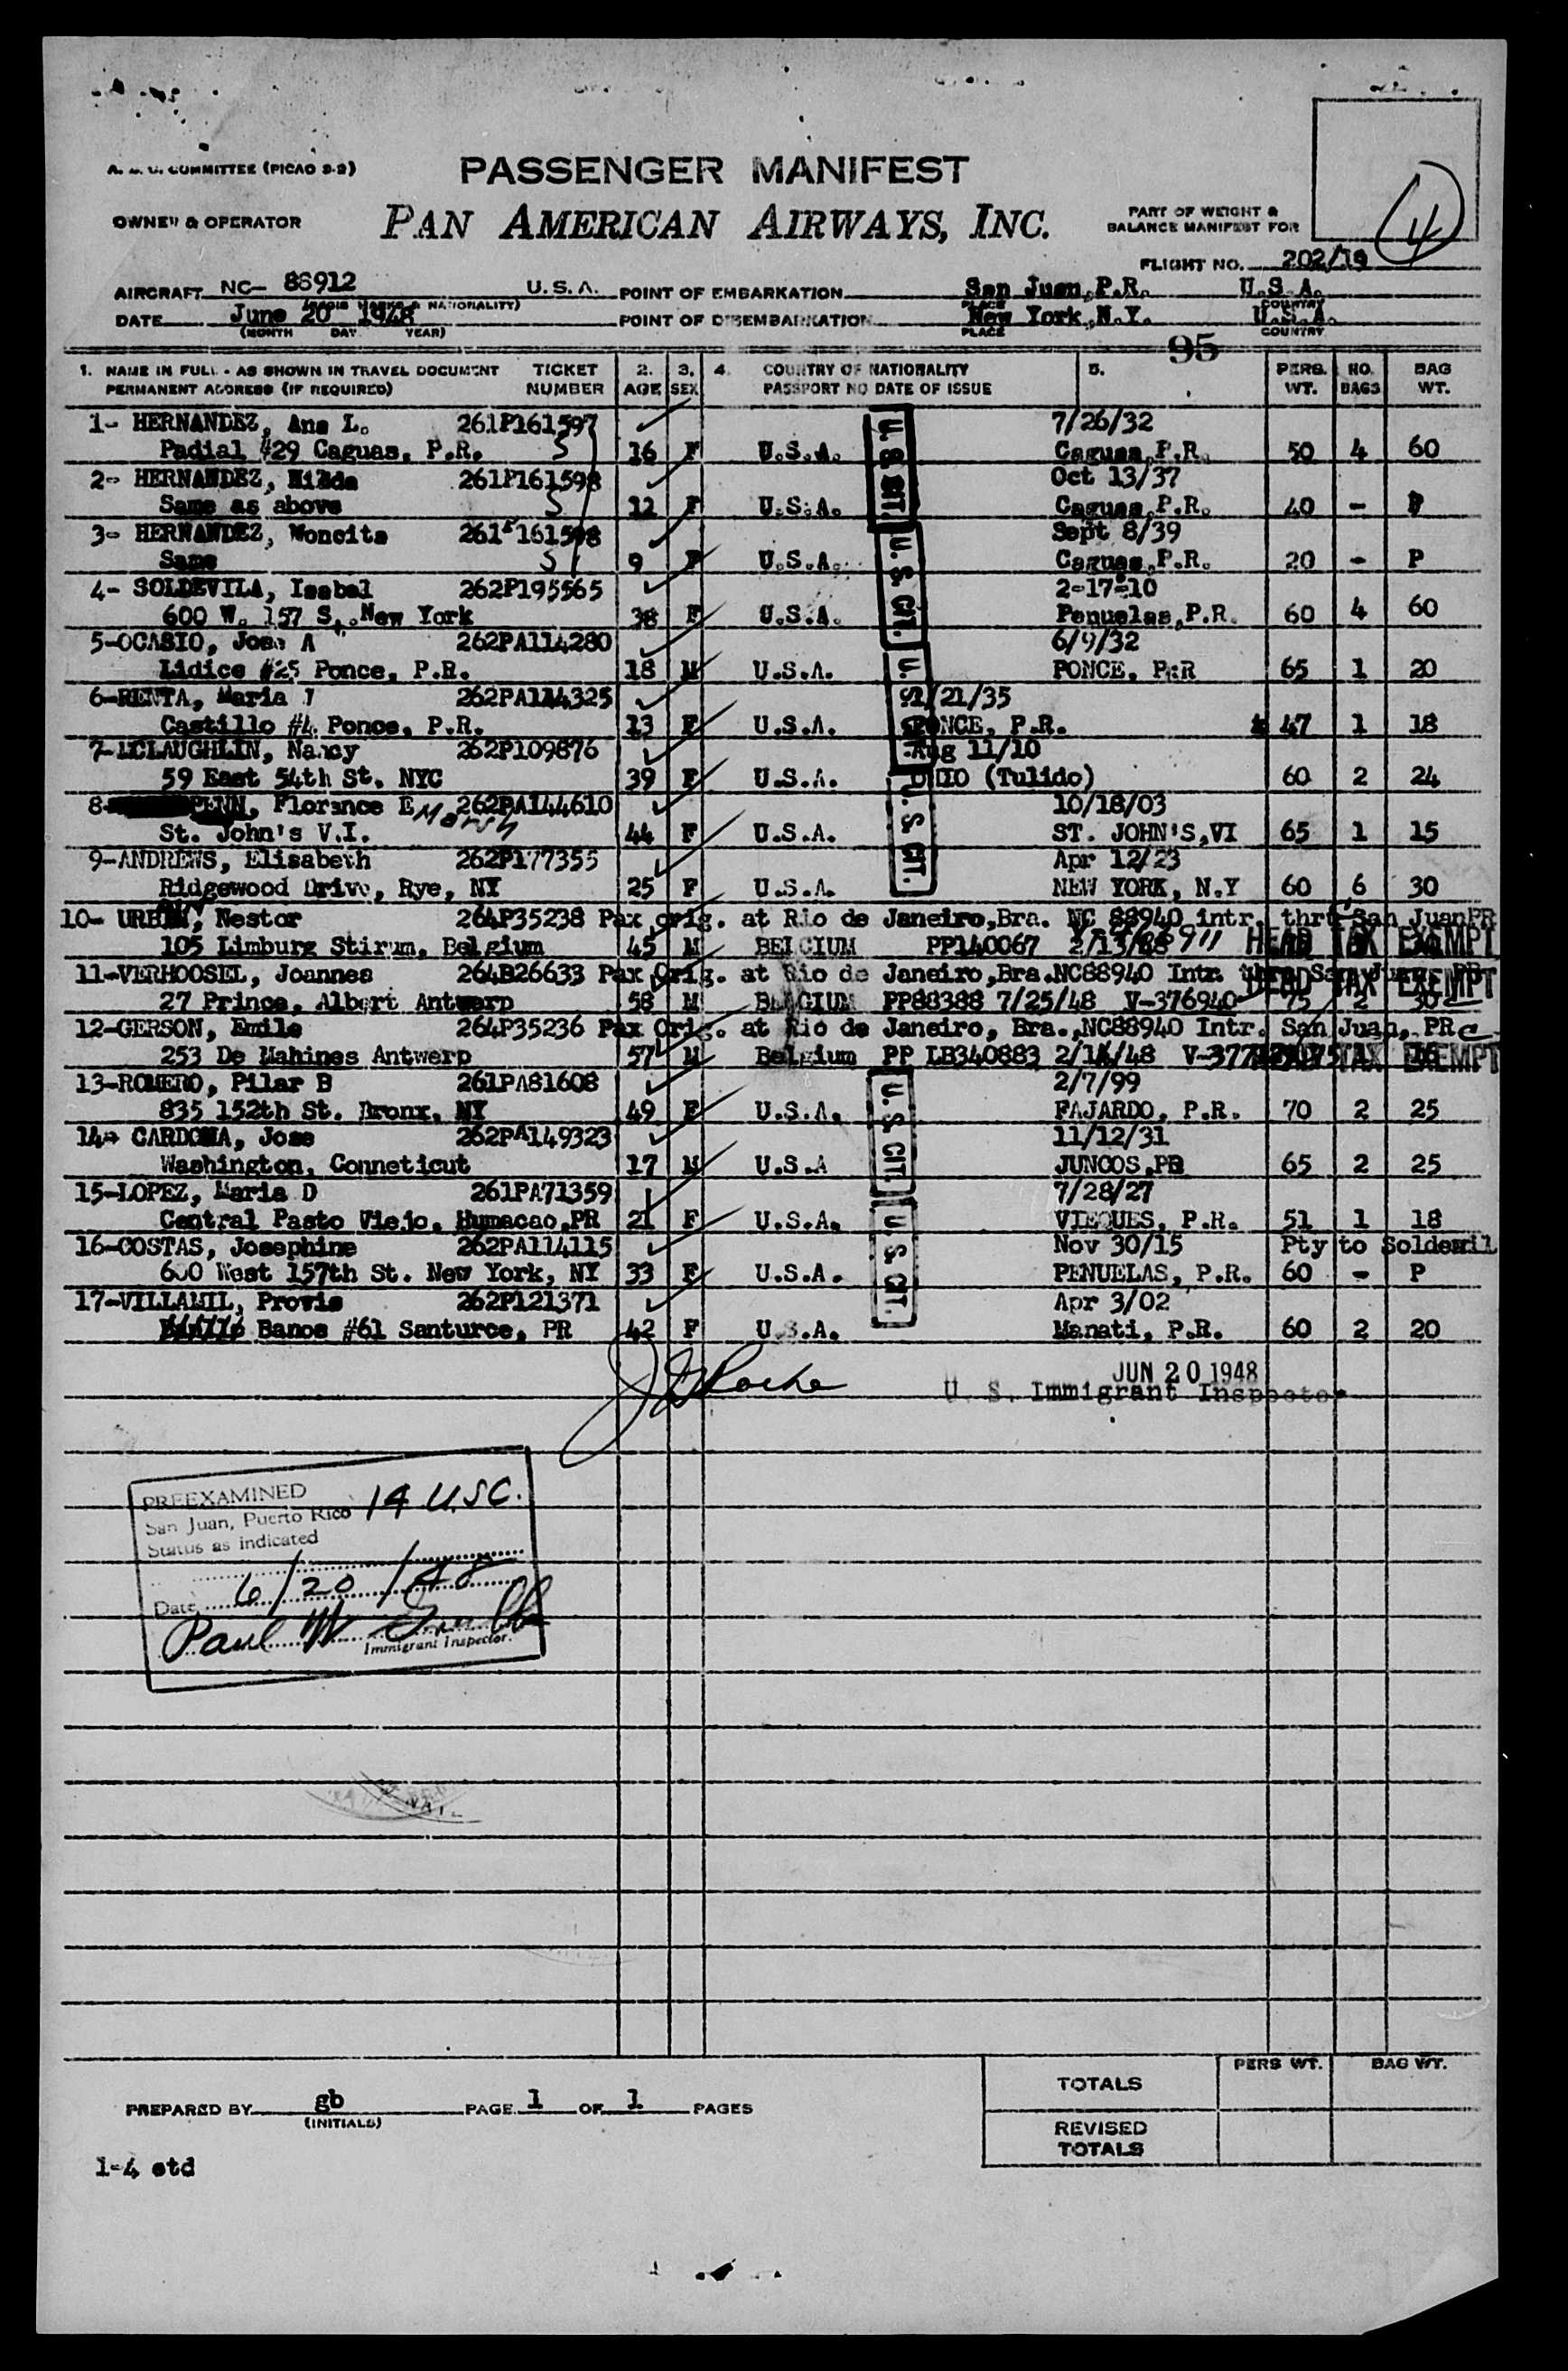 A. T. C. COMMITTEE (PICAO 9-2)
PASSENGER MANIFEST
OWNER & OPERATOR
PAN AMERICAN AIRWAYS, INC.
PART OF WEIGHT &
BALANCE MANIFEST FOR
4
FLIGHT NO. 202/19
AIRCRAFT NC- 88912 U.S.A. POINT OF EMBARKATION San Juan, P.R. U.S.A.
(RADIO MARKS & NATIONALITY) PLACE COUNTRY
DATE June 20 1948 POINT OF DISEMBARKATION New York, N.Y. U.S.A.
(MONTH DAY YEAR) PLACE COUNTRY
95
1. NAME IN FULL - AS SHOWN IN TRAVEL DOCUMENT TICKET 2. 3. 4. COUNTRY OF NATIONALITY 5. PERS. NO. BAG
PERMANENT ADDRESS (IF REQUIRED) NUMBER AGE SEX PASSPORT NO DATE OF ISSUE WT. BAGS WT.
1- HERNANDEZ, Ana L. 261P161597 7/26/32
Padial #29 Caguas, P.R. S 16 F U.S.A. Caguas, P.R. 50 4 60
2- HERNANDEZ, Hilda 261P161598 Oct 13/37
Same as above S 12 F U.S.A. Caguas, P.R. 40 - P
3- HERNANDEZ, Moncita 261P161598 Sept 8/39
Same S 9 F U.S.A. Caguas, P.R. 20 - P
4- SOLDEVILA, Isabel 262P195565 2-17-10
600 W. 157 S. New York 38 F U.S.A. Penuelas, P.R. 60 4 60
5-OCASIO, Jose A 262PA114280 6/9/32
Lidice #25 Ponce, P.R. 18 M U.S.A. PONCE, P.R 65 1 20
6-RENTA, Maria 262PA114325 /21/35
Castillo #4 Ponce, P.R. 13 F U.S.A. PONCE, P.R. 47 1 18
7-MCLAUGHLIN, Nancy 262P109876 Aug 11/10
59 East 54th St. NYC 39 F U.S.A. OHIO (Tulido) 60 2 24
8- PENN, Florence E Marsh 262PA144610 10/18/03
St. John's V.I. 44 F U.S.A. ST. JOHN'S, VI 65 1 15
9-ANDREWS, Elisabeth 262P177355 Apr 12/23
Ridgewood Drive, Rye, NY 25 F U.S.A. NEW YORK, N.Y 60 6 30
10- Nestor 264P35238 Pax orig. at Rio de Janeiro, Bra. NC 88940 intr. thru San Juan PR
105 Limburg Stirum, Belgium 45 M BELGIUM PP140067 HEAD TAX EXEMPT
11-VERHOOSEL, Joannes 264B26633 Pax Orig. at Rio de Janeiro, Bra. NC88940 Intr. thru San Juan, PR
27 Prince, Albert Antwerp 58 M BELGIUM PP88388 7/25/48 V-376940 75 2 30 HEAD TAX EXEMPT
12-GERSON, Emile 264P35236 Pax Orig. at Rio de Janeiro, Bra., NC88940 Intr. San Juan, PR
253 De Mahines Antwerp 57 M Belgium PP LB340883 HEAD TAX EXEMPT
13-ROMERO, Pilar B 261PA81608 2/7/99
835 152th St. Bronx, NY 49 F U.S.A. FAJARDO, P.R. 70 2 25
14- CARDONA, Jose 262PA149323 11/12/31
Washington, Conneticut 17 M U.S.A JUNCOS, PR 65 2 25
15-LOPEZ, Maria D 261PA71359 7/28/27
Central Pasto Viejo, Humacao, PR 21 F U.S.A. VIEQUES, P.R. 51 1 18
16-COSTAS, Josephine 262PA114115 Nov 30/15 Pty to
600 West 157th St. New York, NY 33 F U.S.A. PENUELAS, P.R. 60 - P
17-VILLAMIL, Provis 262P121371 Apr 3/02
Banos #61 Santurce, PR 42 F U.S.A. Manati, P.R. 60 2 20
U.S CIT.
U.S CIT.
U.S CIT.
U.S CIT.
U.S CIT.
U.S CIT.
JUN 20 1948
U. S. Immigrant Inspector
PREEXAMINED 14 U.S.C.
San Juan, Puerto Rico
Status as indicated
Date 6/20/48
Paul W
Immigrant Inspector.
PERS WT. BAG WT.
TOTALS
PREPARED BY gb PAGE 1 OF 1 PAGES
(INITIALS)
REVISED
TOTALS
1-4 std